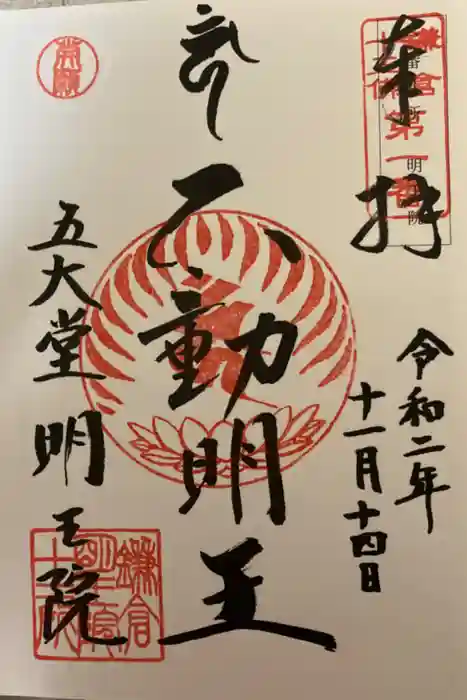 奉拝
鎌倉
十三佛
第一番
明王院
令和二年
十一月十四日
不動明王
五大堂 明王院